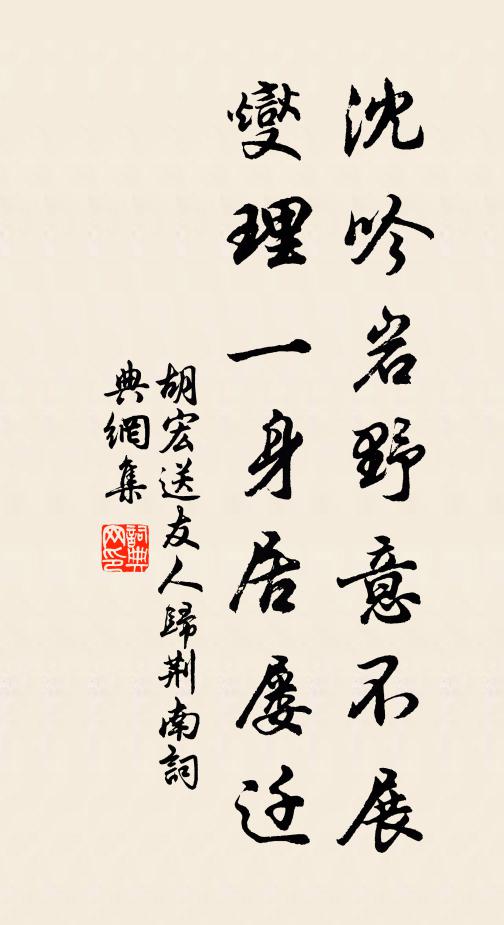 沈吟岩野意不展
燮理一身居屡迁
胡宏送友人歸荆南詞
典網集
詞典
网印